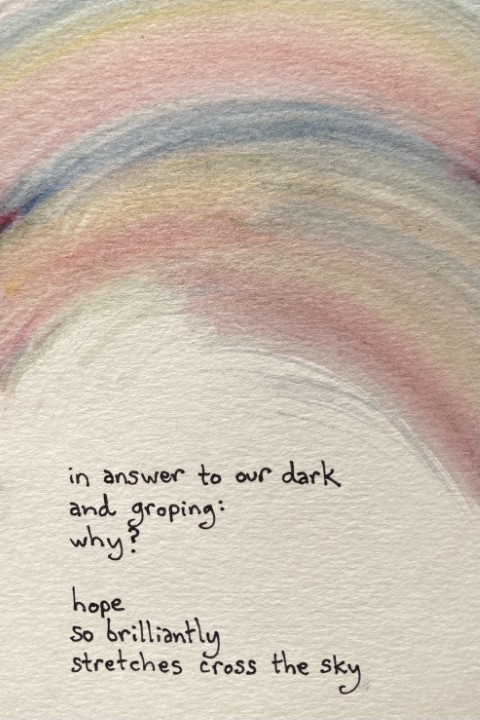 in answer to our dark
and groping:
why?
hope
so brilliantly
stretches cross the sky